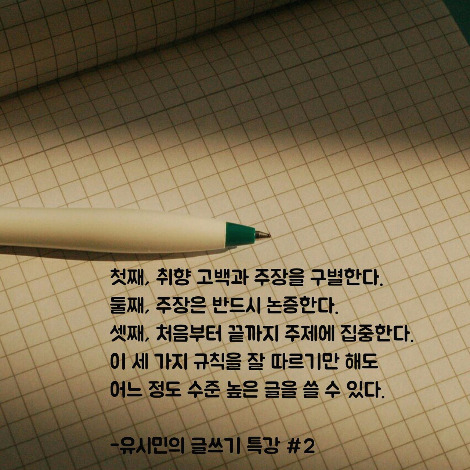 첫째, 취향 고백과 주장을 구별한다.
둘째, 주장은 반드시 논증한다.
셋째, 처음부터 끝까지 주제에 집중한다.
이 세 가지 규칙을 잘 따르기만 해도
어느 정도 수준 높은 글을 쓸 수 있다.
-유시민의 글쓰기 특강 #2